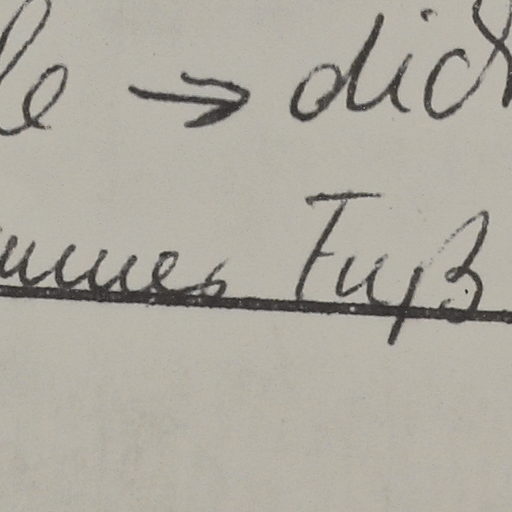 le → dick
ummes Fuß